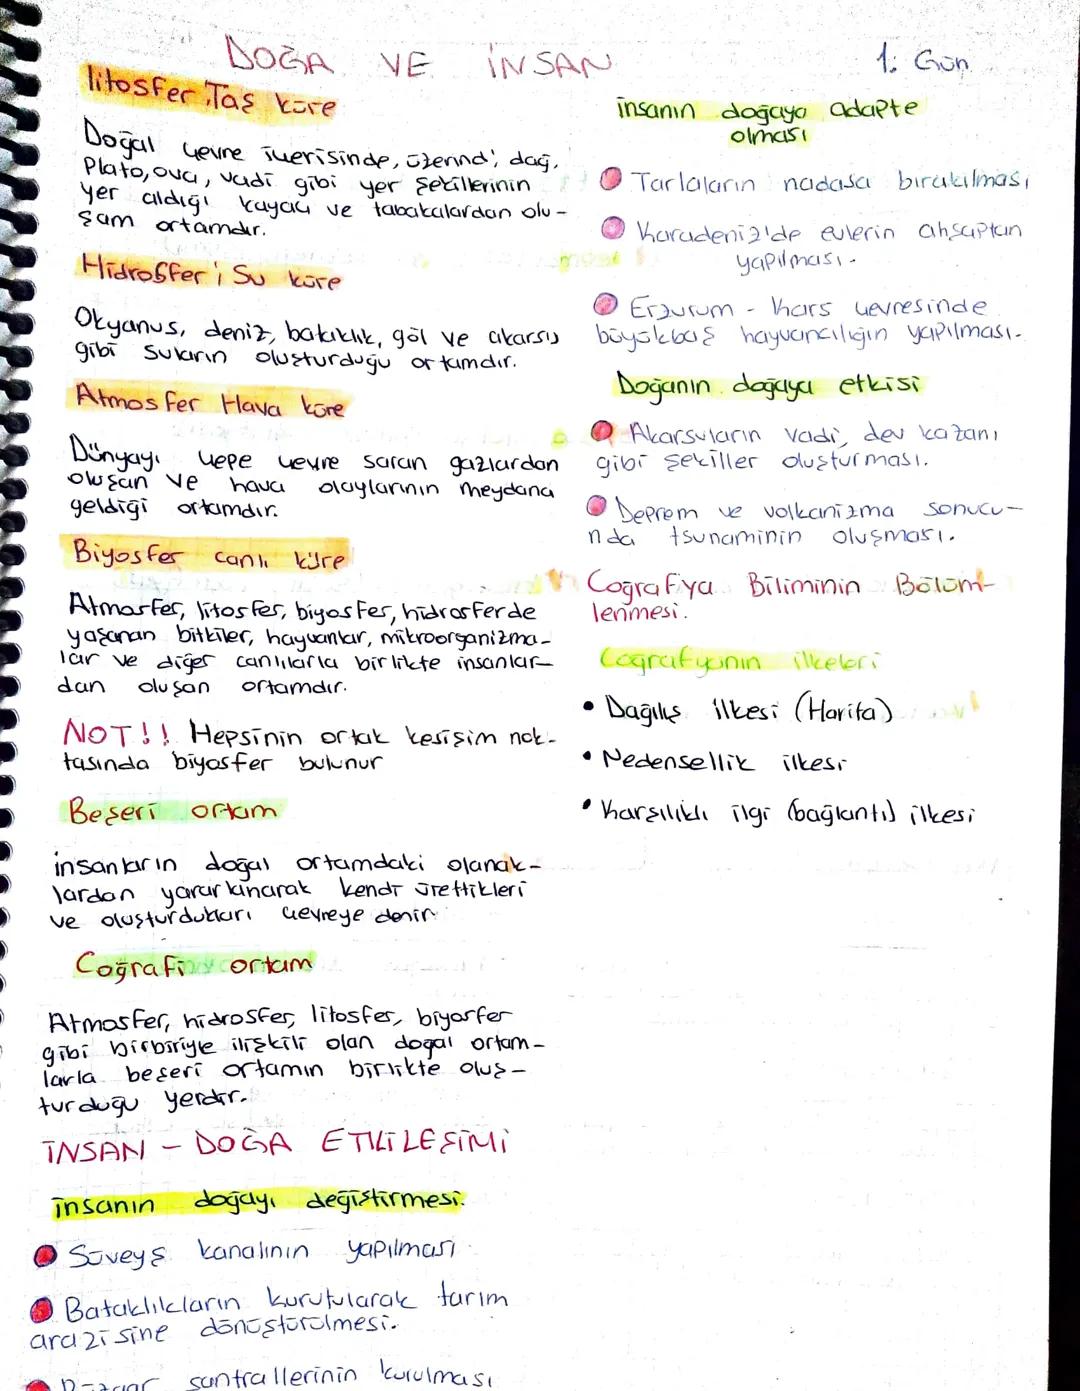 DOĞA VE İNSAN
1. Gün
litosfer, Taş küre
Doğal çevre içerisinde, üzerind', dağ,
Plato, ova, vadi gibi yer şekillerinin
yer aldığı kayaç ve tabakalardan olu-
şam ortamdır.
Hidrosfer ; Su küre
Okyanus, deniz, bataklık, göl ve akarsu
gibi suların oluşturduğu ortamdır.
Atmosfer Hava küre
Dünyayı çepe çevre saran gazlardan
oluşan ve hava olaylarının meydana
geldiği ortamdır.
Biyosfer canlı küre
Atmosfer, litosfer, biyosfer, hidrosferde
yaşanan bitkiler, hayvanlar, mikroorganizma-
lar ve diğer canlılarla birlikte insanlar-
dan oluşan ortamdır.
NOT!! Hepsinin ortak kesişim nok-
tasında biyosfer bulunur
Beşeri ortam
insanların doğal ortamdaki olanak-
lardan yararlanarak kendi ürettikleri
ve oluşturdukları çevreye denir
Coğrafi ortam
Atmosfer, hidrosfer, litosfer, biyosfer
gibi birbiriyle ilişkili olan doğal ortam-
larla beşeri ortamın birlikte oluş-
turduğu yerdir.
İNSAN - DOĞA ETKİLEŞİMİ
insanın doğayı değiştirmesi.
Süveyş kanalının yapılması
Bataklıkların kurutularak tarım
arazisine dönüştürülmesi.
santrallerinin kurulması
insanın doğaya adapte
olması
Tarlaların nadasa bırakılması
Karadeniz'de evlerin ahşaptan
yapılması.
Erzurum - Kars çevresinde
büyükbaş hayvancılığın yapılması.
Doğanın doğaya etkisi
Akarsuların vadi, dev kazanı
gibi şekiller oluşturması.
Deprem ve volkanizma sonucu-
nda tsunaminin oluşması.
Coğrafya Biliminin Bölüm-
lenmesi.
Coğrafyanın ilkeleri
• Dağılış ilkesi (Harita)
• Nedensellik ilkesi
• Karşılıklı ilgi (bağlantı) ilkesi